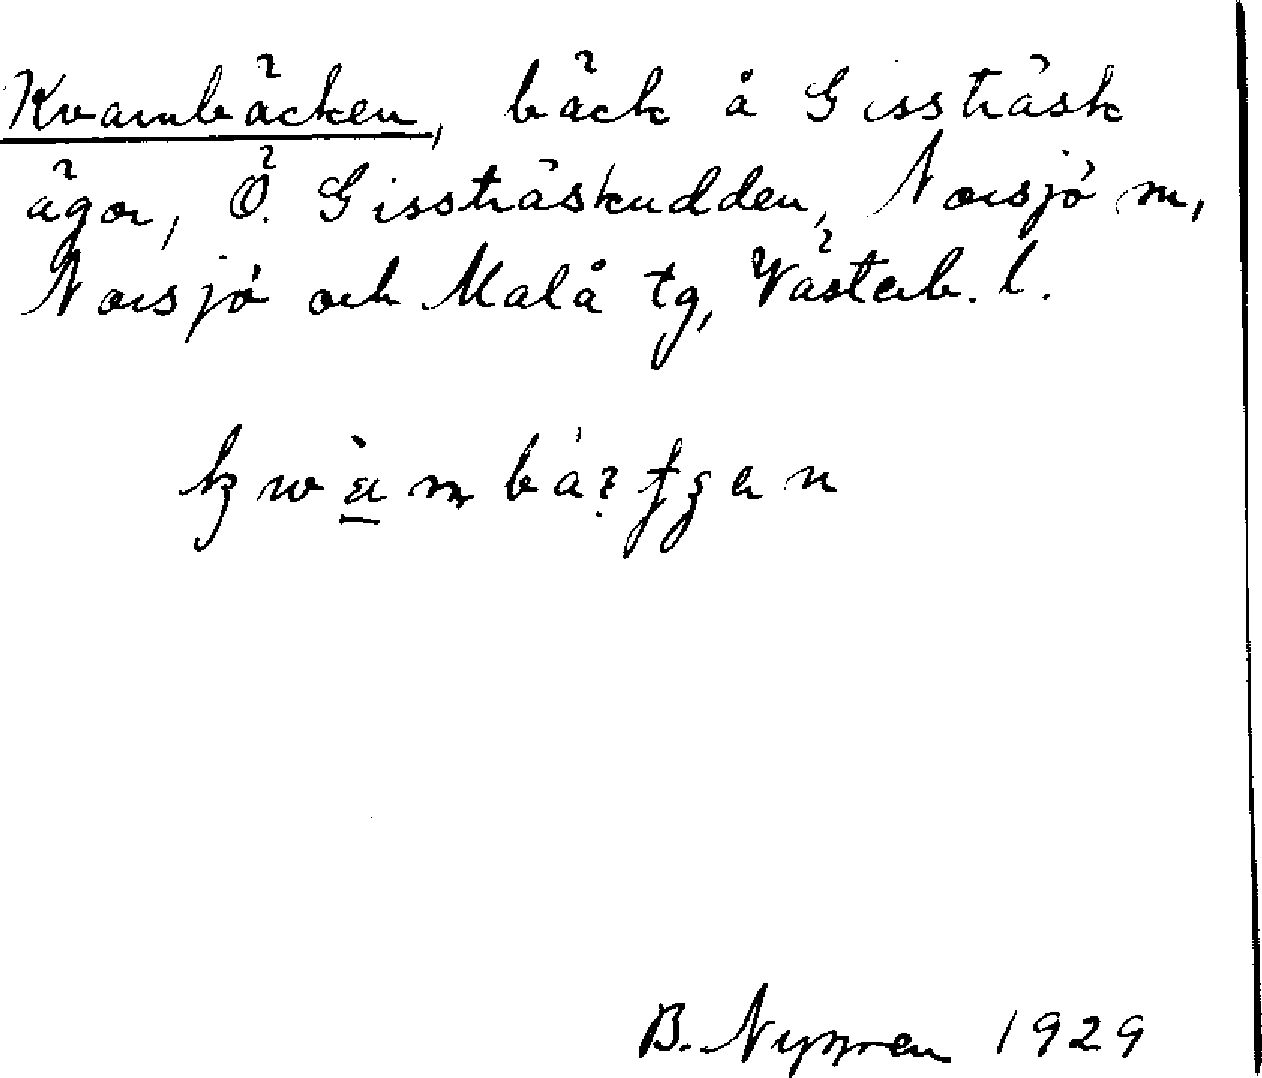 Kvarnbäcken, bäck å Gissträsk
ägor, Ö. Gissträskudden, Norsjö sn,
Norsjö och Malå tg, Västerb. l.
1929